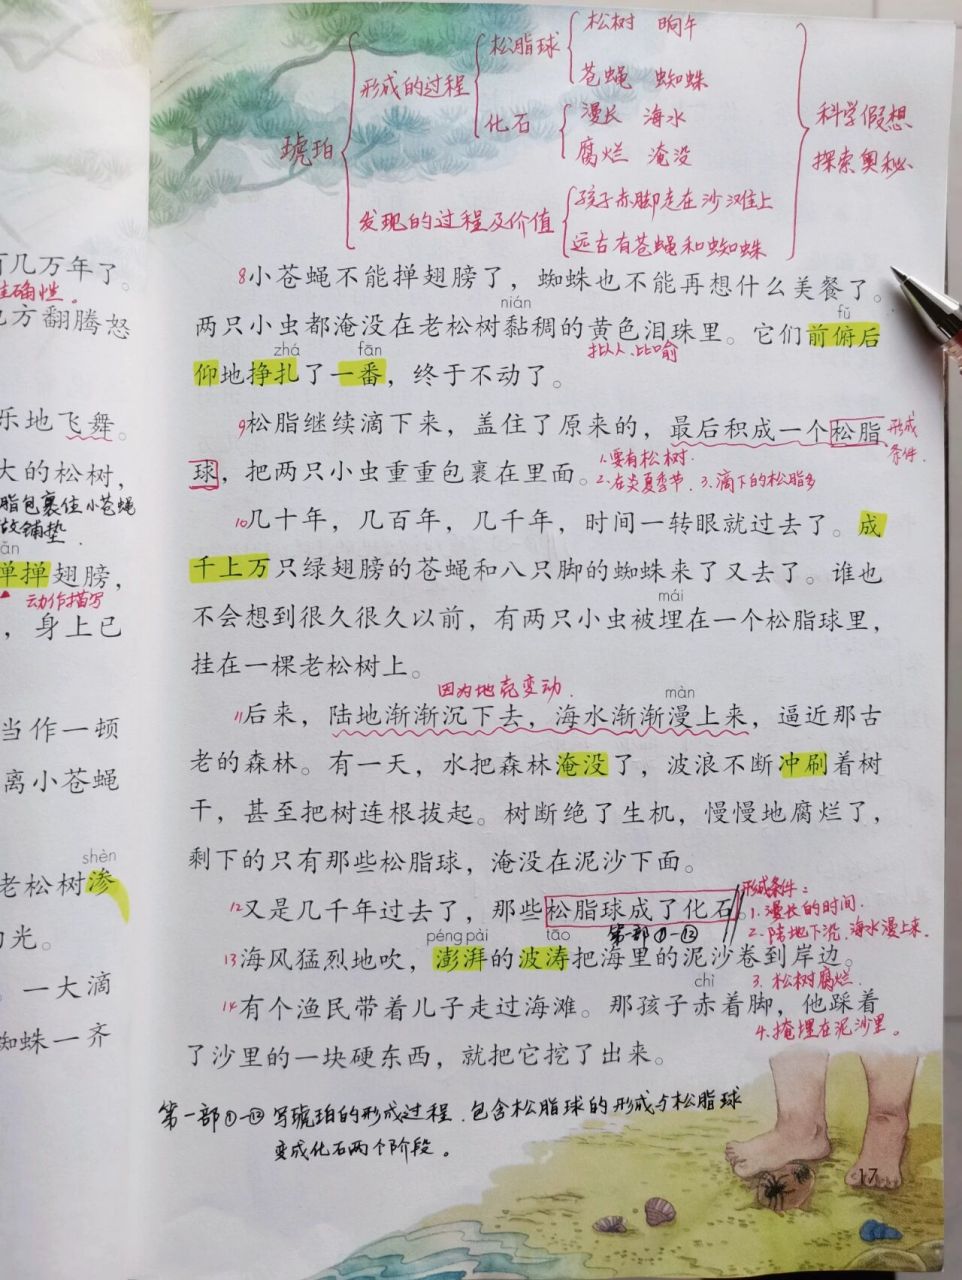 琥珀
形成的过程
松脂球
松树 晌午
苍蝇 蜘蛛
化石
漫长 海水
腐烂 淹没
发现的过程及价值
孩子赤脚走在沙滩上
远古有苍蝇和蜘蛛
科学假想
探索奥秘
几万年了。
准确性。
方翻腾怒
乐地飞舞。
大的松树，
脂包裹住小苍蝇
故铺垫.
掸掸翅膀，
动作描写
，身上已
当作一顿
离小苍蝇
shèn
老松树渗
光。
一大滴
蜘蛛一齐
8小苍蝇不能掸翅膀了，蜘蛛也不能再想什么美餐了。
nián
fǔ
两只小虫都淹没在老松树黏稠的黄色泪珠里。它们前俯后
拟人、比喻
zhá fān
仰地挣扎了一番，终于不动了。
9松脂继续滴下来，盖住了原来的，最后积成一个松脂
形成条件.
球，把两只小虫重重包裹在里面。
1.要有松树.
2.在炎夏季节. 3.滴下的松脂多
10几十年，几百年，几千年，时间一转眼就过去了。成
千上万只绿翅膀的苍蝇和八只脚的蜘蛛来了又去了。谁也
mái
不会想到很久很久以前，有两只小虫被埋在一个松脂球里，
挂在一棵老松树上。
因为地壳变动.
màn
11后来，陆地渐渐沉下去，海水渐渐漫上来，逼近那古
老的森林。有一天，水把森林淹没了，波浪不断冲刷着树
干，甚至把树连根拔起。树断绝了生机，慢慢地腐烂了，
剩下的只有那些松脂球，淹没在泥沙下面。
形成条件：
12又是几千年过去了，那些松脂球成了化石。
1.漫长的时间.
第一部①—⑫
2.陆地下沉、海水漫上来。
péng pài tāo
13海风猛烈地吹，澎湃的波涛把海里的泥沙卷到岸边。
3.松树腐烂.
chì
14有个渔民带着儿子走过海滩。那孩子赤着脚，他踩着
4.掩埋在泥沙里。
了沙里的一块硬东西，就把它挖了出来。
第一部①—⑫写琥珀的形成过程.包含松脂球的形成与松脂球
变成化石两个阶段。
17